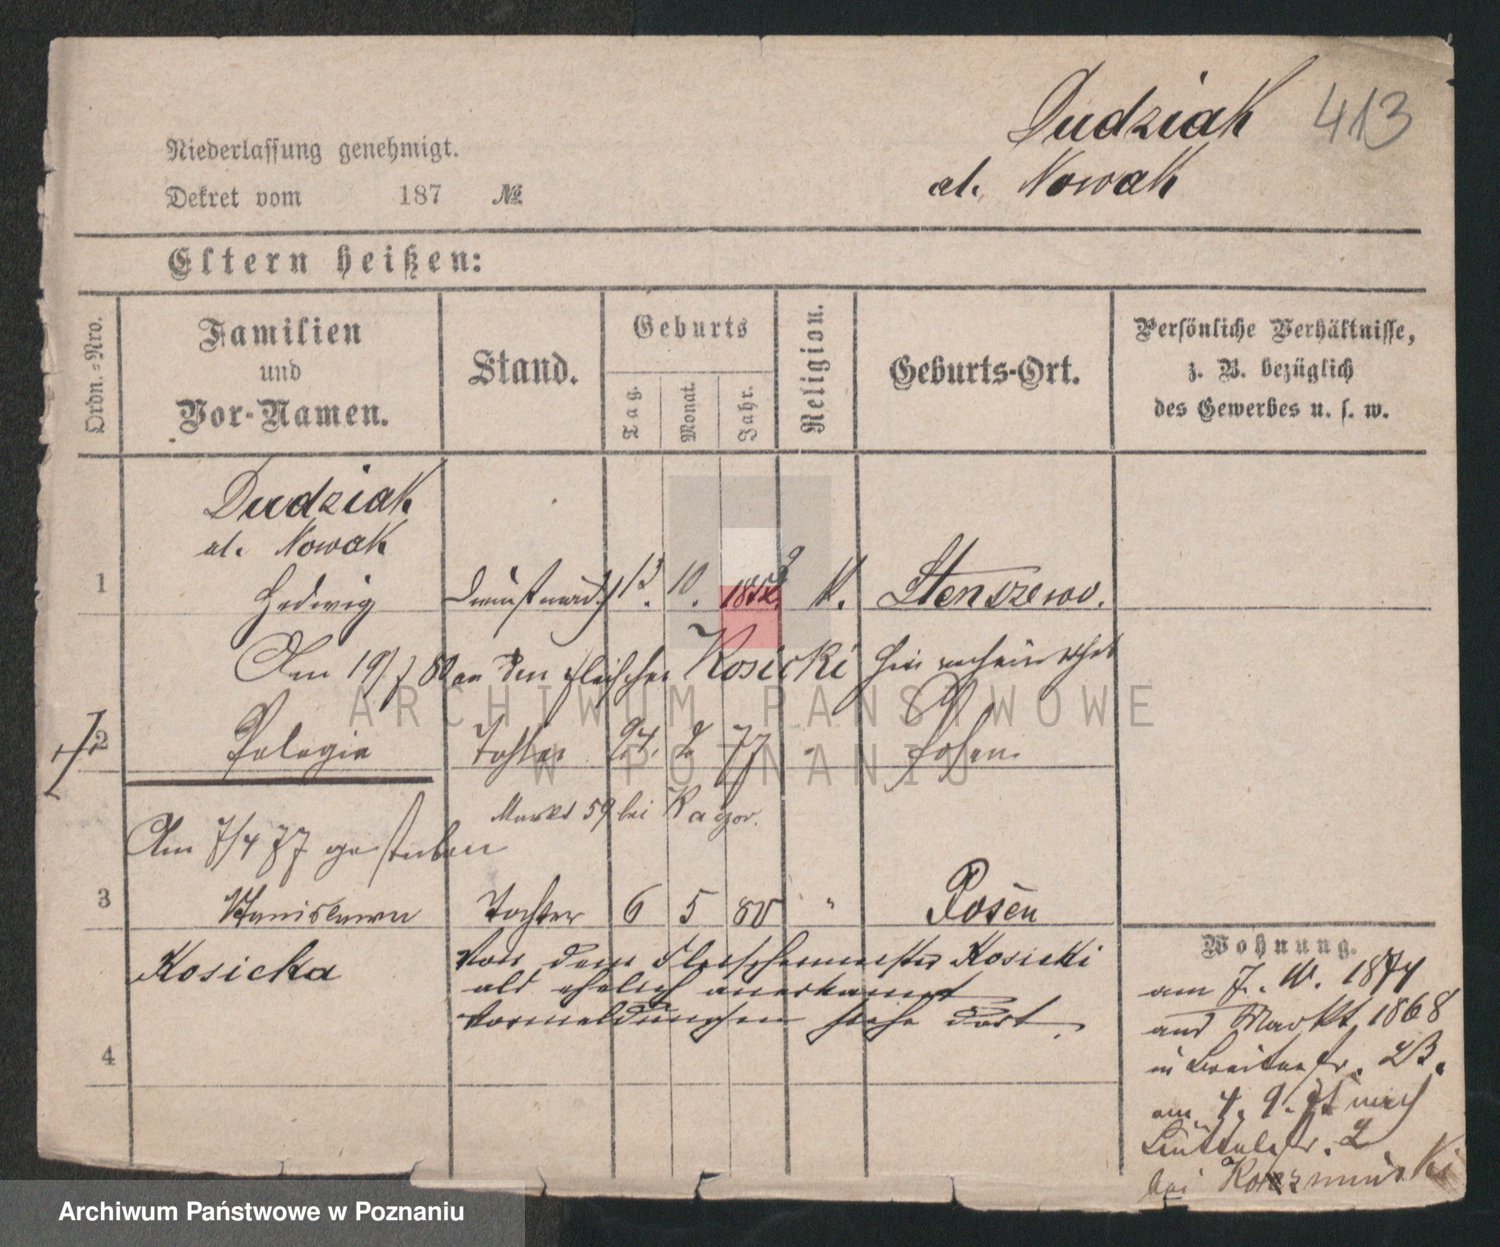 Dudziak 413
al. Nowak
Niederlassung genehmigt.
Dekret vom 187 №
Eltern heißen:
Ordn.-Nro.
Familien
und
Vor-Namen.
Stand.
Geburts
Tag.
Monat.
Jahr.
Religion.
Geburts-Ort.
Persönliche Verhältnisse,
z. B. bezüglich
des Gewerbes u. s. w.
Dudziak
al. Nowak
1 Hedwig 13. 10. K. Stenszewo.
Am 19/7 80 an den Fleischer Kosicki hier verheirathet
2 Pelagia Tochter 24. 2 77 " Posen
Markt 59 bei Kagor.
Am 7/4 77 gestorben
3 Stanislawa Tochter 6 5 80 " Posen
Kosicka
Von dem Fleischermeister Kosicki
als ehelich anerkannt
Vormeldungen siehe dort.
4
Wohnung.
am 7. 10. 1874
aus Markt 1868
in Breitestr. 23.
am 4. 9. nach
2
bei
ARCHIWUM PAŃSTWOWE
W POZNANIU
Archiwum Państwowe w Poznaniu